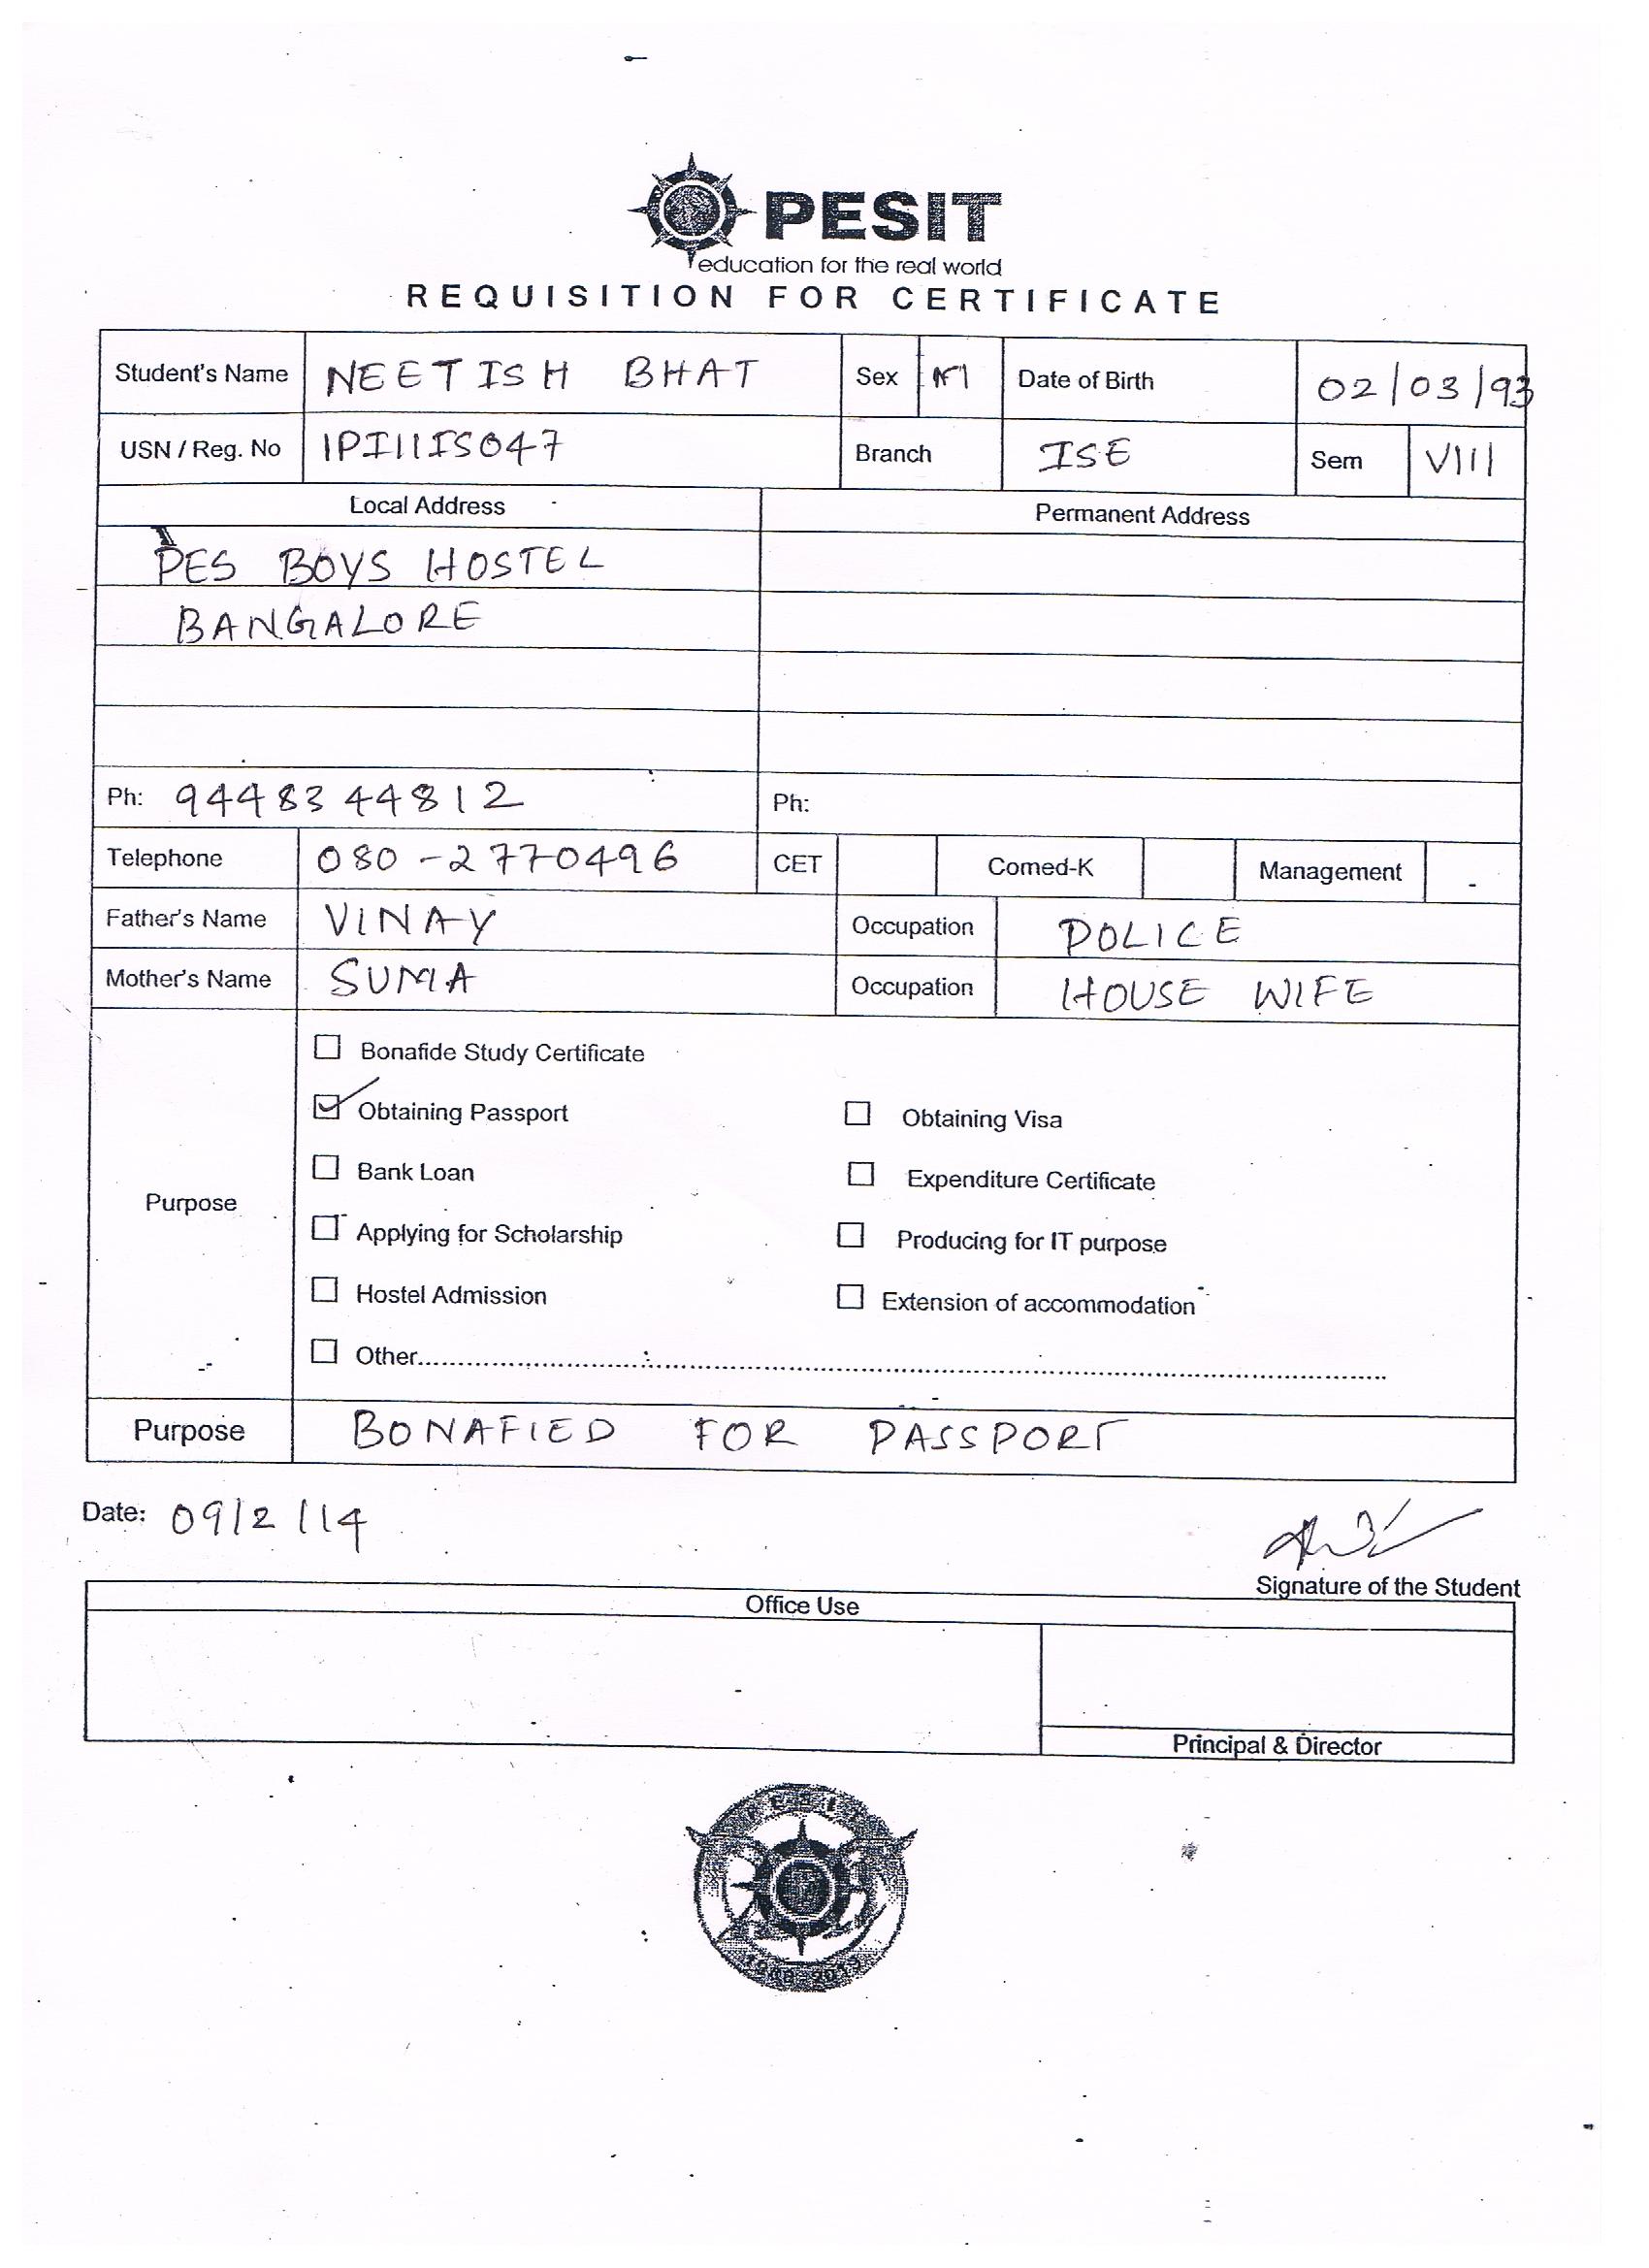 PESIT
education for the real world
REQUISITION FOR CERTIFICATE
Student's Name NEETISH BHAT Sex M Date of Birth 02/03/93
USN / Reg. No 1PI11IS047 Branch ISE Sem VIII
Local Address Permanent Address
PES BOYS HOSTEL
BANGALORE
Ph: 9448344812 Ph:
Telephone 080-2770496 CET Comed-K Management
Father's Name VINAY Occupation POLICE
Mother's Name SUMA Occupation HOUSE WIFE
Bonafide Study Certificate
Obtaining Passport Obtaining Visa
Bank Loan Expenditure Certificate
Purpose
Applying for Scholarship Producing for IT purpose
Hostel Admission Extension of accommodation
Other
Purpose BONAFIED FOR PASSPORT
Date: 09/2/14
Signature of the Student
Office Use
Principal & Director
PESIT